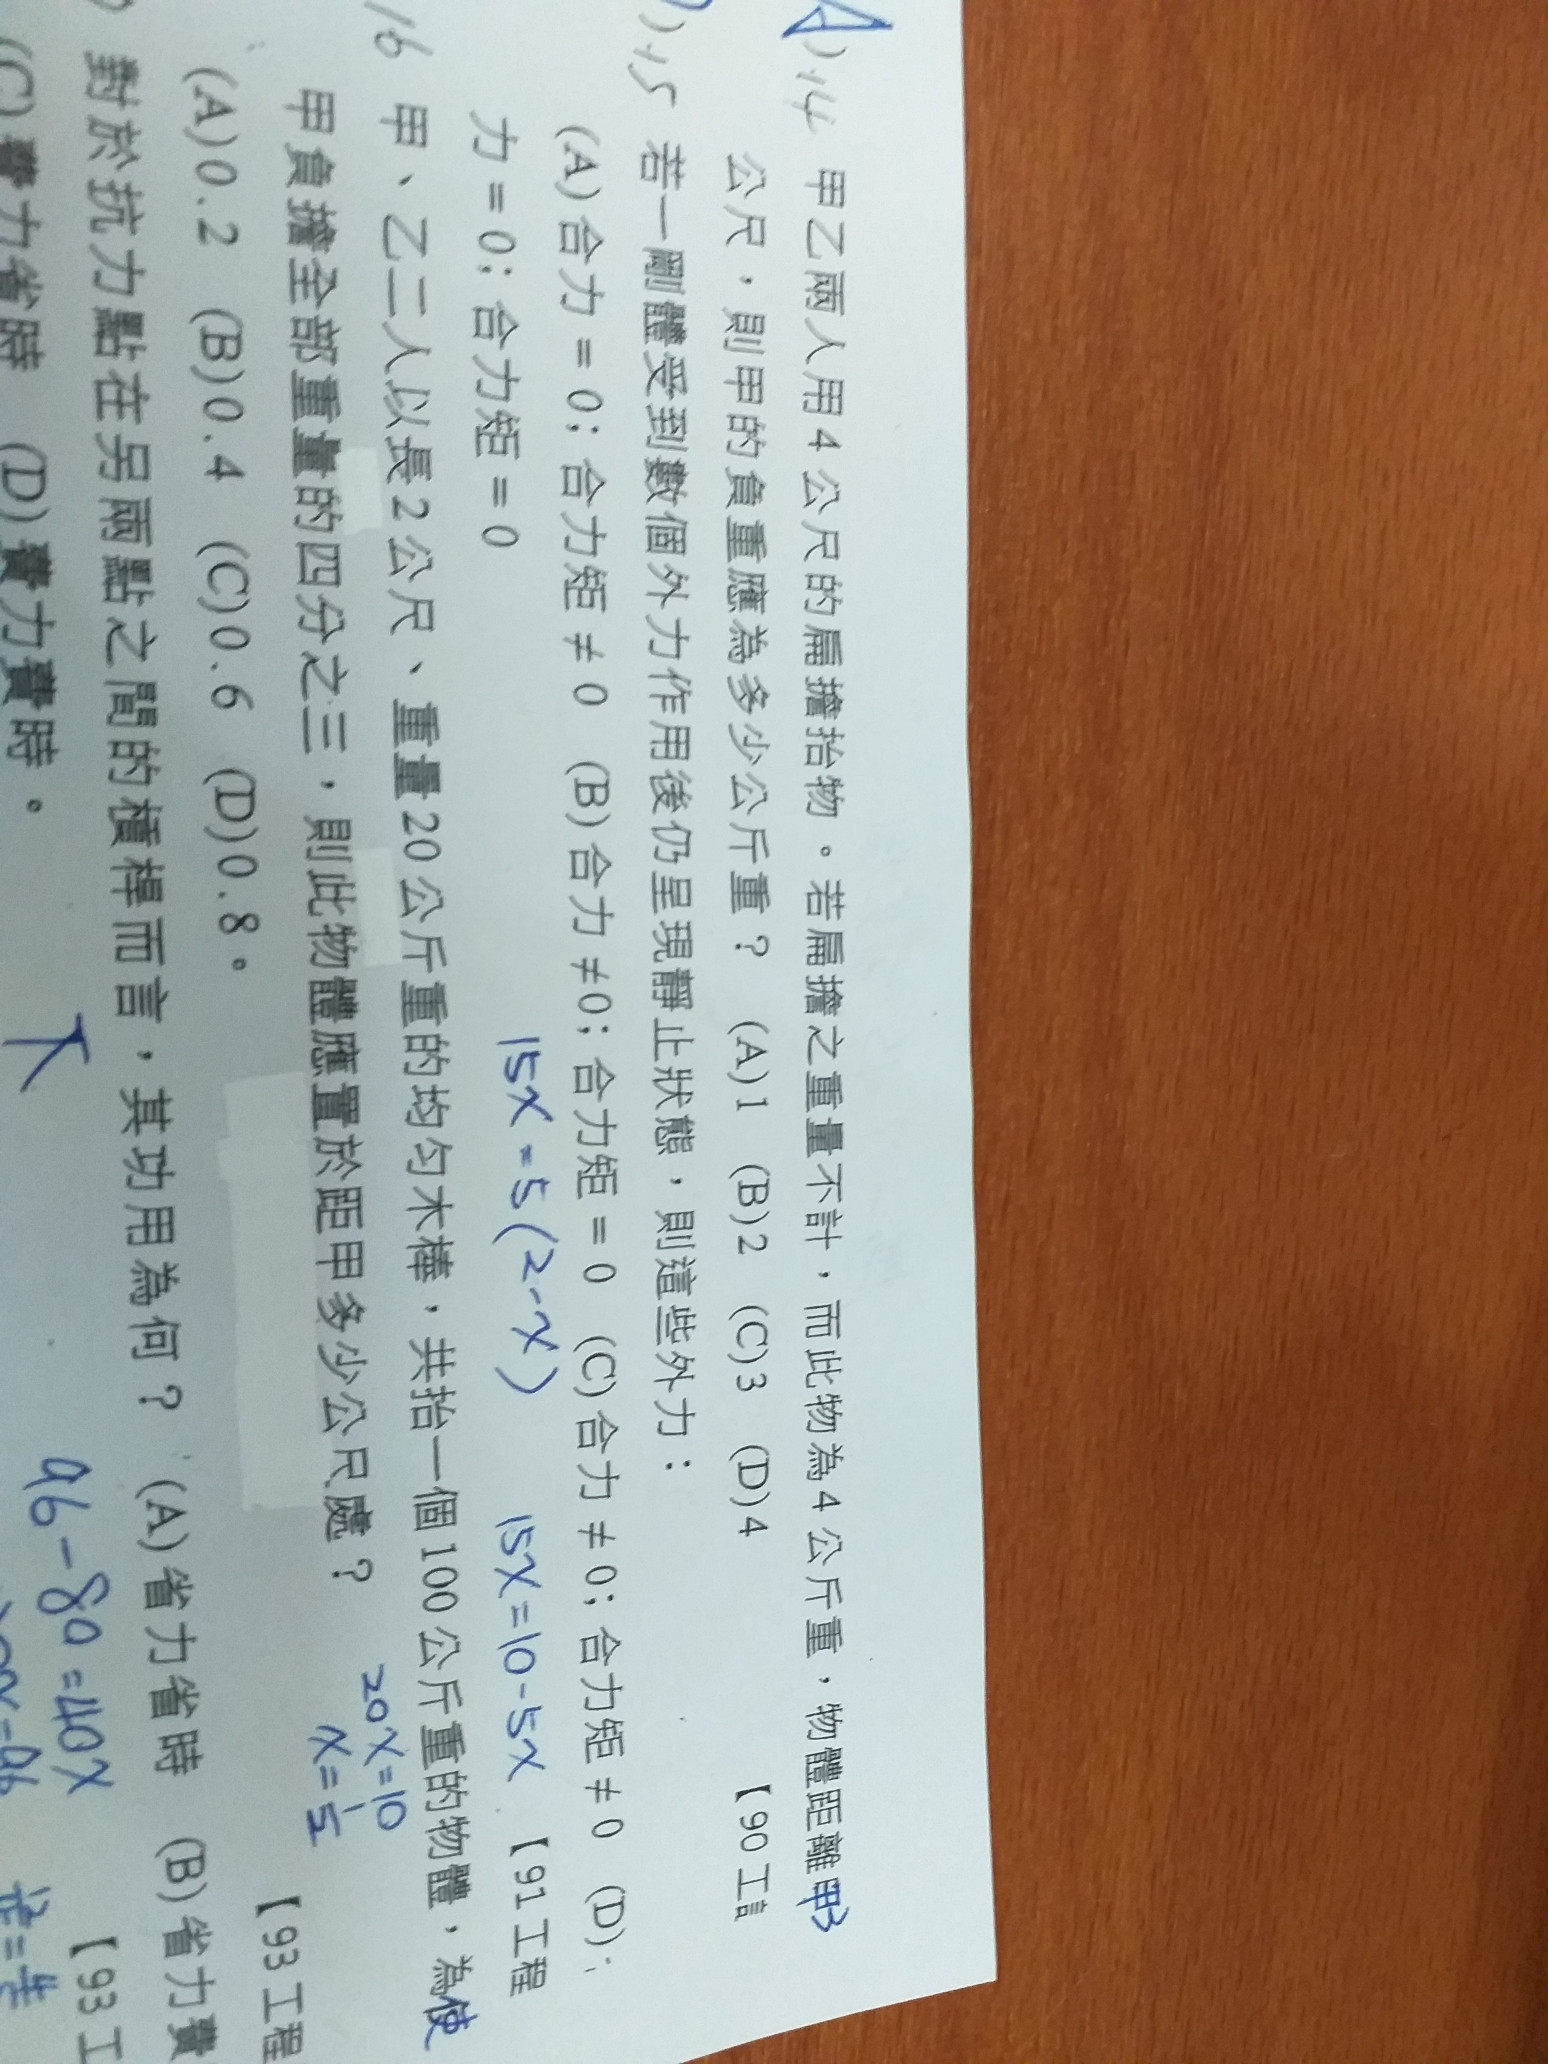 A)14 甲乙兩人用4公尺的扁擔抬物。若扁擔之重量不計，而此物為4公斤重，物體距離甲3
公尺，則甲的負重應為多少公斤重？ (A)1 (B)2 (C)3 (D)4 【90工
)15 若一剛體受到數個外力作用後仍呈現靜止狀態，則這些外力：
(A)合力=0；合力矩≠0 (B)合力≠0；合力矩=0 (C)合力≠0；合力矩≠0 (D)
力=0；合力矩=0 【91工程
15x=5(2-x) 15x=10-5x
16 甲、乙二人以長2公尺、重量20公斤重的均勻木棒，共抬一個100公斤重的物體，為使
甲負擔全部重量的四分之三，則此物體應置於距甲多少公尺處？
20x=10
x=1/5
(A)0.2 (B)0.4 (C)0.6 (D)0.8。 【93工程
對於抗力點在另兩點之間的槓桿而言，其功用為何？ (A)省力省時 (B)省力費
(C)費力省時 (D)費力費時。 【93工
96-80=40x